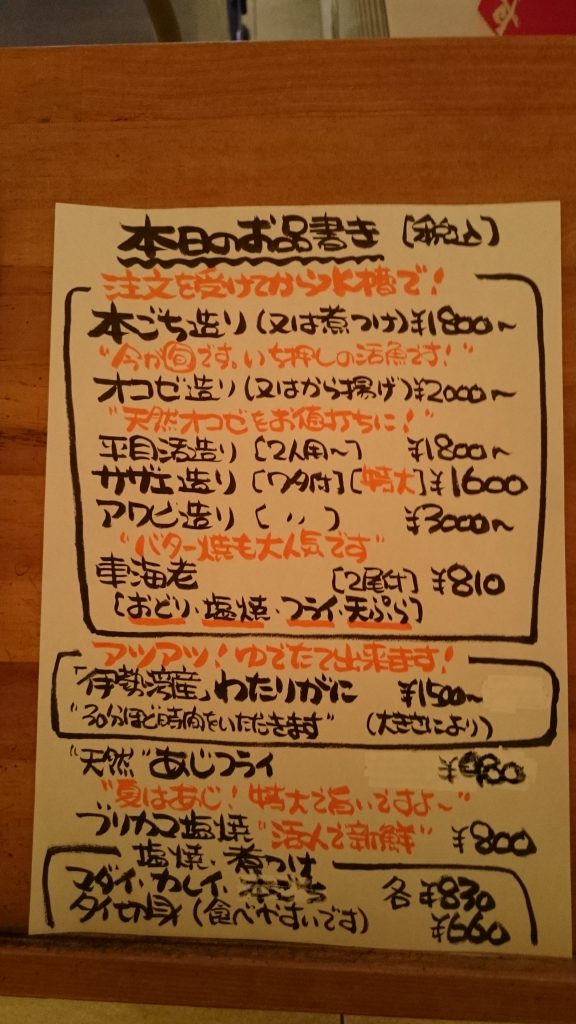 本日のお品書き [税込]
注文を受けてから水槽で!
本ごち造り(又は煮つけ)¥1800〜
"今が旬です。いち押しの活魚です!"
オコゼ造り(又はから揚げ)¥2000〜
"天然オコゼをお値打ちに!"
平目活造り[2人用〜] ¥1800〜
サザエ造り[ワタ付][特大]¥1600
アワビ造り( 〃 ) ¥3000〜
"バター焼も大人気です"
車海老 [2尾付] ¥810
[おどり・塩焼・フライ・天ぷら]
アツアツ!ゆでたて出来ます!
「伊勢湾産」わたりがに ¥1500〜
"30分ほど時間をいただきます" (大きさにより)
"天然"あじフライ
"夏はあじ!特大で旨いですよ〜"
ブリカマ塩焼"活〆で新鮮" ¥800
塩焼・煮つけ
マダイ、カレイ、本ごち 各 ¥830
タイ切身(食べやすいです) ¥660